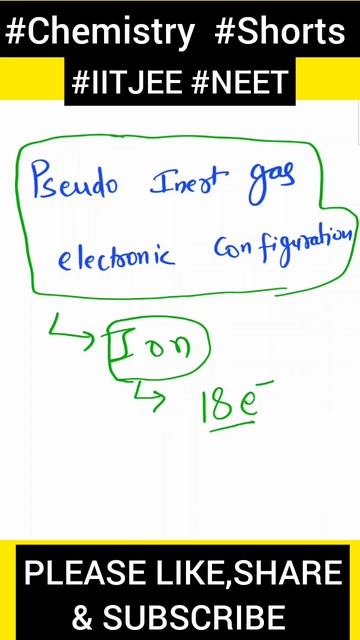 #Chemistry #Shorts
#IITJEE #NEET
Pseudo Inert gas
electronic Configuration
Ion
18e⁻
PLEASE LIKE,SHARE
& SUBSCRIBE